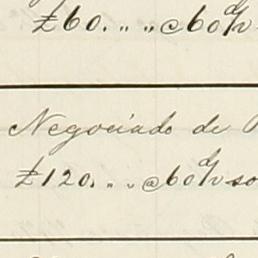 £60. „ „ @ 60 d/v
Negociado de
£120. „ „ @ 60 d/v so